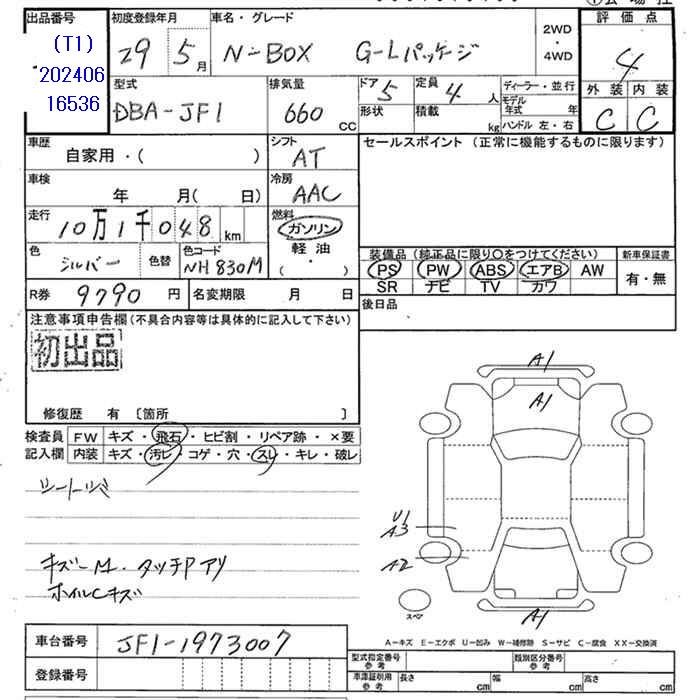 出品番号 初度登録年月 車名・グレード 2WD・4WD 評価点
(T1) 29 5月 N-BOX G-Lパッケージ 4
202406
16536
型式 排気量 ドア 5 定員 4人 ディーラー・並行 外装 内装
DBA-JF1 660cc 形状 積載 kg モデル年式 年 C C
ハンドル 左・右
車歴 シフト セールスポイント (正常に機能するものに限ります)
自家用・( ) AT
車検 冷房
年 月( 日) AAC
走行 燃料
10万1千048km ガソリン
軽油
( ・ )
色 シルバー 色替 色コード NH830M
装備品(純正品に限り○をつけてください) 新車保証書
PS PW ABS エアB AW 有・無
SR ナビ TV カワ
R券 9790円 名変期限 月 日 後日品
注意事項申告欄(不具合内容等は具体的に記入して下さい)
初出品
修復歴 有 [箇所 ]
検査員 FW キズ・飛石・ヒビ割・リペア跡・×要
記入欄 内装 キズ・汚レ・コゲ・穴・スレ・キレ・破レ
A1
A1
U1
A3
A2
A1
キズ-M・タッチPアリ
ホイルCキズ
スペア
A-キズ E-エクボ U-凹み W-補修跡 S-サビ C-腐食 XX-交換済
車台番号 JF1-1973007
登録番号
型式指定番号 参考 類別区分番号 参考
車庫証明用 参考 長さ cm 幅 cm 高さ cm